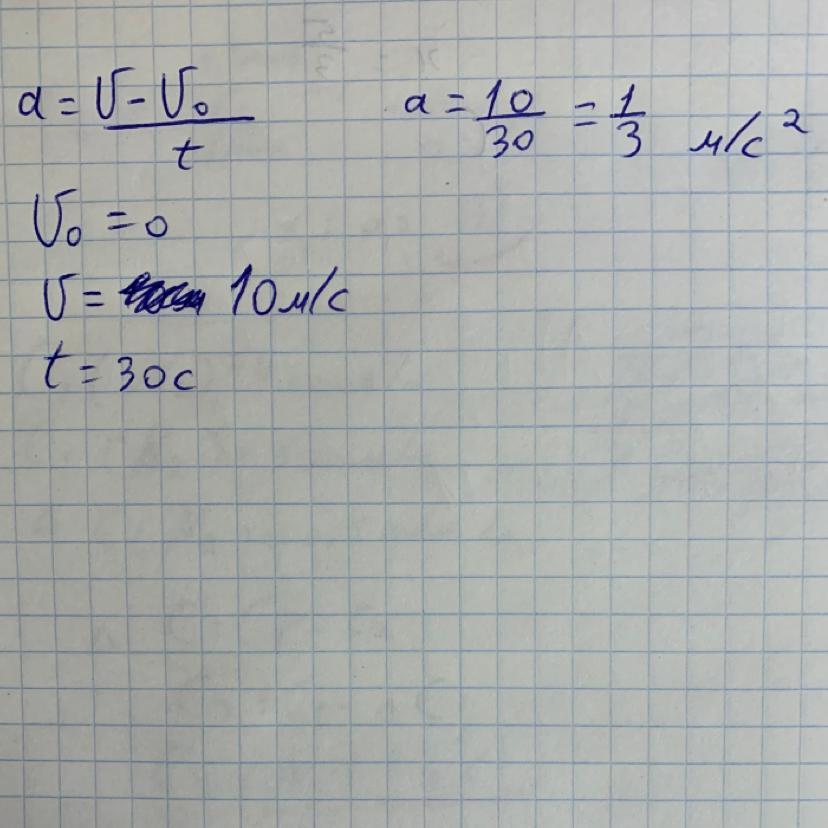 a = (υ - υ₀) / t
a = 10/30 = 1/3 м/с²
υ₀ = 0
υ = 10 м/с
t = 30 с